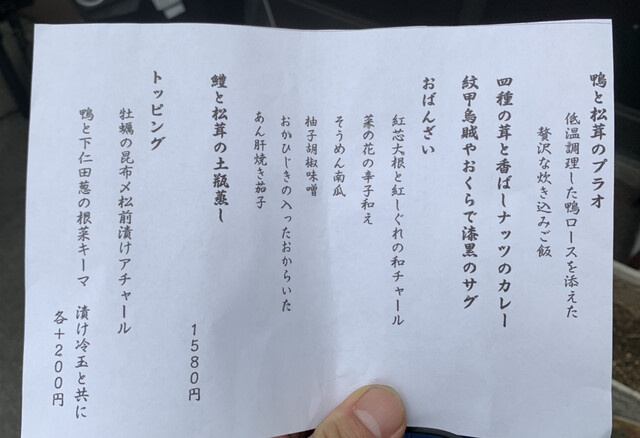 鴨と松茸のプラオ
低温調理した鴨ロースを添えた
贅沢な炊き込みご飯
四種の茸と香ばしナッツのカレー
紋甲烏賊やおくらで漆黒のサグ
おばんざい
紅芯大根と紅しぐれの和チャール
菜の花の辛子和え
そうめん南瓜
柚子胡椒味噌
おかひじきの入ったおからいた
あん肝焼き茄子
鱧と松茸の土瓶蒸し
1580円
トッピング
牡蠣の昆布〆松前漬けアチャール
鴨と下仁田葱の根菜キーマ 漬け冷玉と共に
各+200円